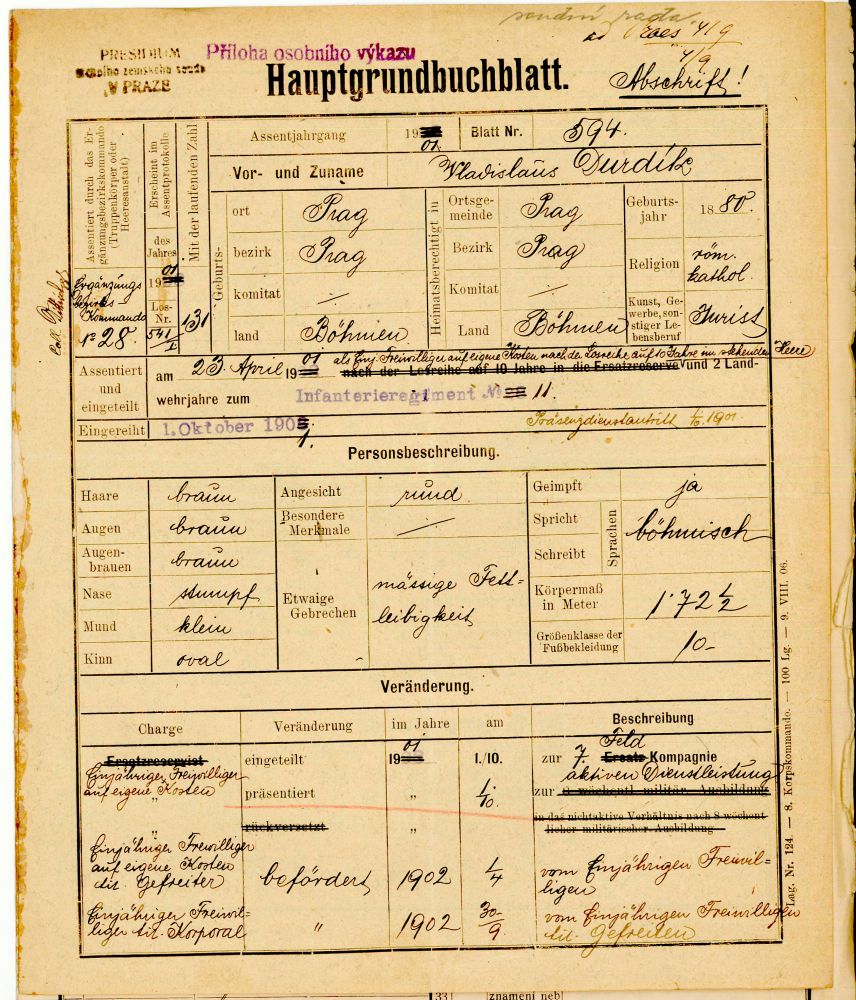 soudní rada
ad Praes 4/9
4/9
PRESIDIUM
zemského soudu
V PRAZE
Příloha osobního výkazu
Hauptgrundbuchblatt.
Abschrift!
Assentiert durch das Ergänzungsbezirkskommando (Truppenkörper oder Heeresanstalt)
Erscheint im Assentprotokolle
des Jahres
1901
Los-Nr.
541/I
Mit der laufenden Zahl
131
Ergänzungs
bezirks-
Kommando
No 28.
Assentjahrgang 1901. Blatt Nr. 594.
Vor- und Zuname Vladislaus Durdík
Geburts-
ort Prag
bezirk Prag
komitat ./.
land Böhmen
Heimatsberechtigt in
Ortsgemeinde Prag
Bezirk Prag
Komitat ./.
Land Böhmen
Geburtsjahr 1880.
Religion röm. kathol.
Kunst, Gewerbe, sonstiger Lebensberuf Jurist
Assentiert und eingeteilt
am 23. April 1901 als Einj. Freiwilliger auf eigene Kosten nach der Losreihe auf 10 Jahre im stehenden Heere
nach der Losreihe auf 10 Jahre in die Ersatzreserve und 2 Land-
wehrjahre zum Infanterieregiment No 11.
Eingereiht 1. Oktober 1901. Präsenzdienstantritt 1/10. 1901.
Personsbeschreibung.
Haare braun
Augen braun
Augenbrauen braun
Nase stumpf
Mund klein
Kinn oval
Angesicht rund
Besondere Merkmale ./.
Etwaige Gebrechen mässige Fettleibigkeit
Geimpft ja
Spricht
Schreibt
Sprachen
böhmisch
Körpermaß in Meter 1·72 1/2
Größenklasse der Fußbekleidung 10-
Veränderung.
Charge Veränderung im Jahre am Beschreibung
Ersatzreservist eingeteilt 1901 1./10. zur 7. Feld Ersatz-Kompagnie
Einjähriger Freiwilliger
auf eigene Kosten
" präsentiert " 1/10. zur aktiven Dienstleistung
8 wöchentl militär Ausbildung
" rückversetzt " in das nichtaktive Verhältnis nach 8 wöchent
licher militärischer Ausbildung
Einjähriger Freiwilliger
auf eigene Kosten
tit. Gefreiter befördert 1902 1/4 vom Einjährigen Freiwil-
ligen
Einjähriger Freiwil-
liger tit. Korporal " 1902 30/9. vom Einjährigen Freiwilligen
tit. Gefreiten
Lag. Nr. 124. — 8. Korpskommando. — 100 Lg. — 9. VIII. 06.
33 znamení neb